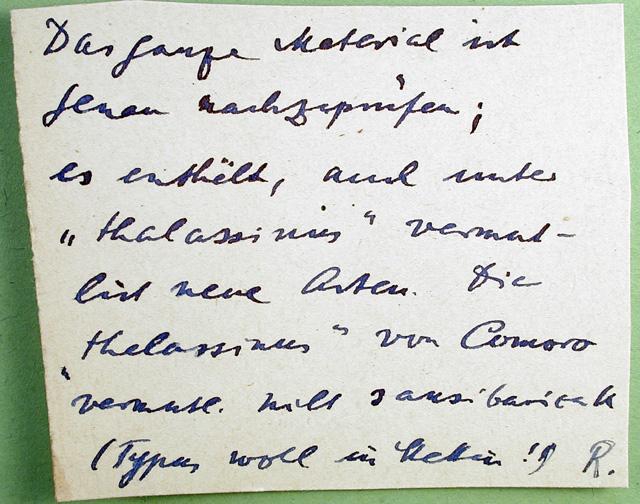 Das ganze Material ist
genau nachzuprüfen;
es enthält, auch unter
„thalassinus“ vermut-
lich neue Arten. Die
„thalassinus“ von Comoro
vermutl. nicht sansibarica
(Typus wohl in Stettin!) R.